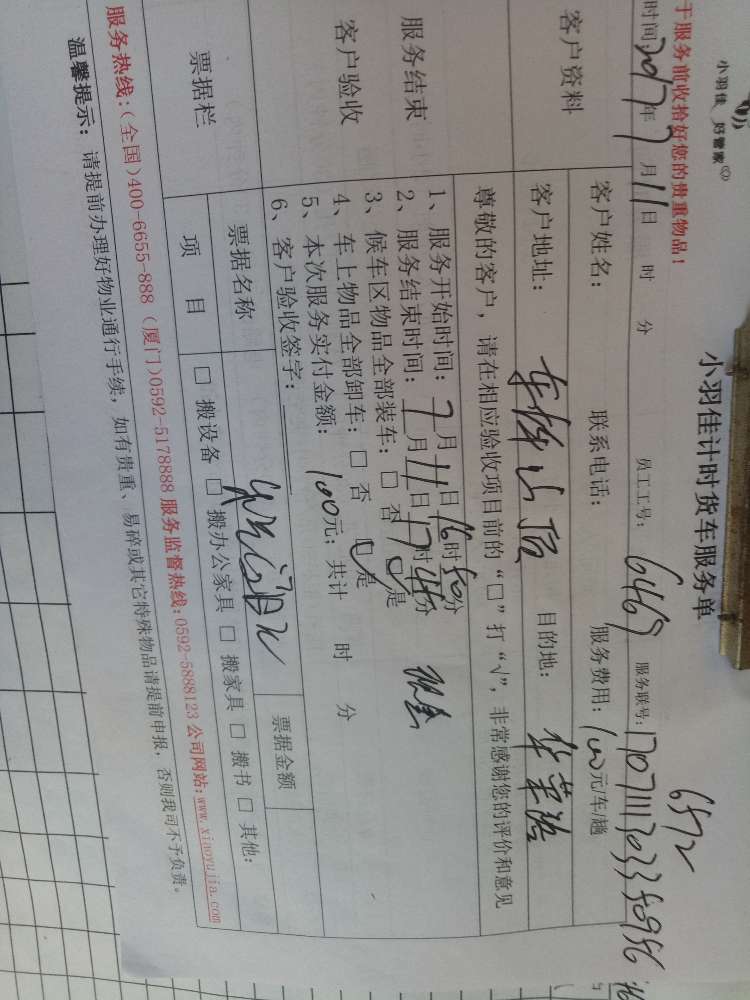 小羽佳 好管家
小羽佳计时货车服务单
6572
于服务前收拾好您的贵重物品!
时间2017年7月11日 时 分 员工工号: 6469 服务联号:
客户资料
客户姓名: 联系电话: 服务费用: 100元/车/趟
客户地址: 目的地:
尊敬的客户,请在相应验收项目前的“□”打“√”,非常感谢您的评价和意见
服务结束
客户验收
1、服务开始时间: 7月11日16时50分
2、服务结束时间: 7月11日17时45分 现金
3、候车区物品全部装车: □ 否 □ 是
4、车上物品全部卸车: □ 否 □ 是
5、本次服务实付金额: 100元; 共计 时 分
6、客户验收签字:
票据栏
票据名称 票据金额
项 目 □ 搬设备 □ 搬办公家具 □ 搬家具 □ 搬书 □ 其他:
服务热线:(全国)400-6655-888 (厦门)0592-5178888 服务监督热线:0592-5888123 公司网站:www.xiaoyujia.com
温馨提示: 请提前办理好物业通行手续, 如有贵重、易碎或其它特殊物品请提前申报, 否则我司不予负责。